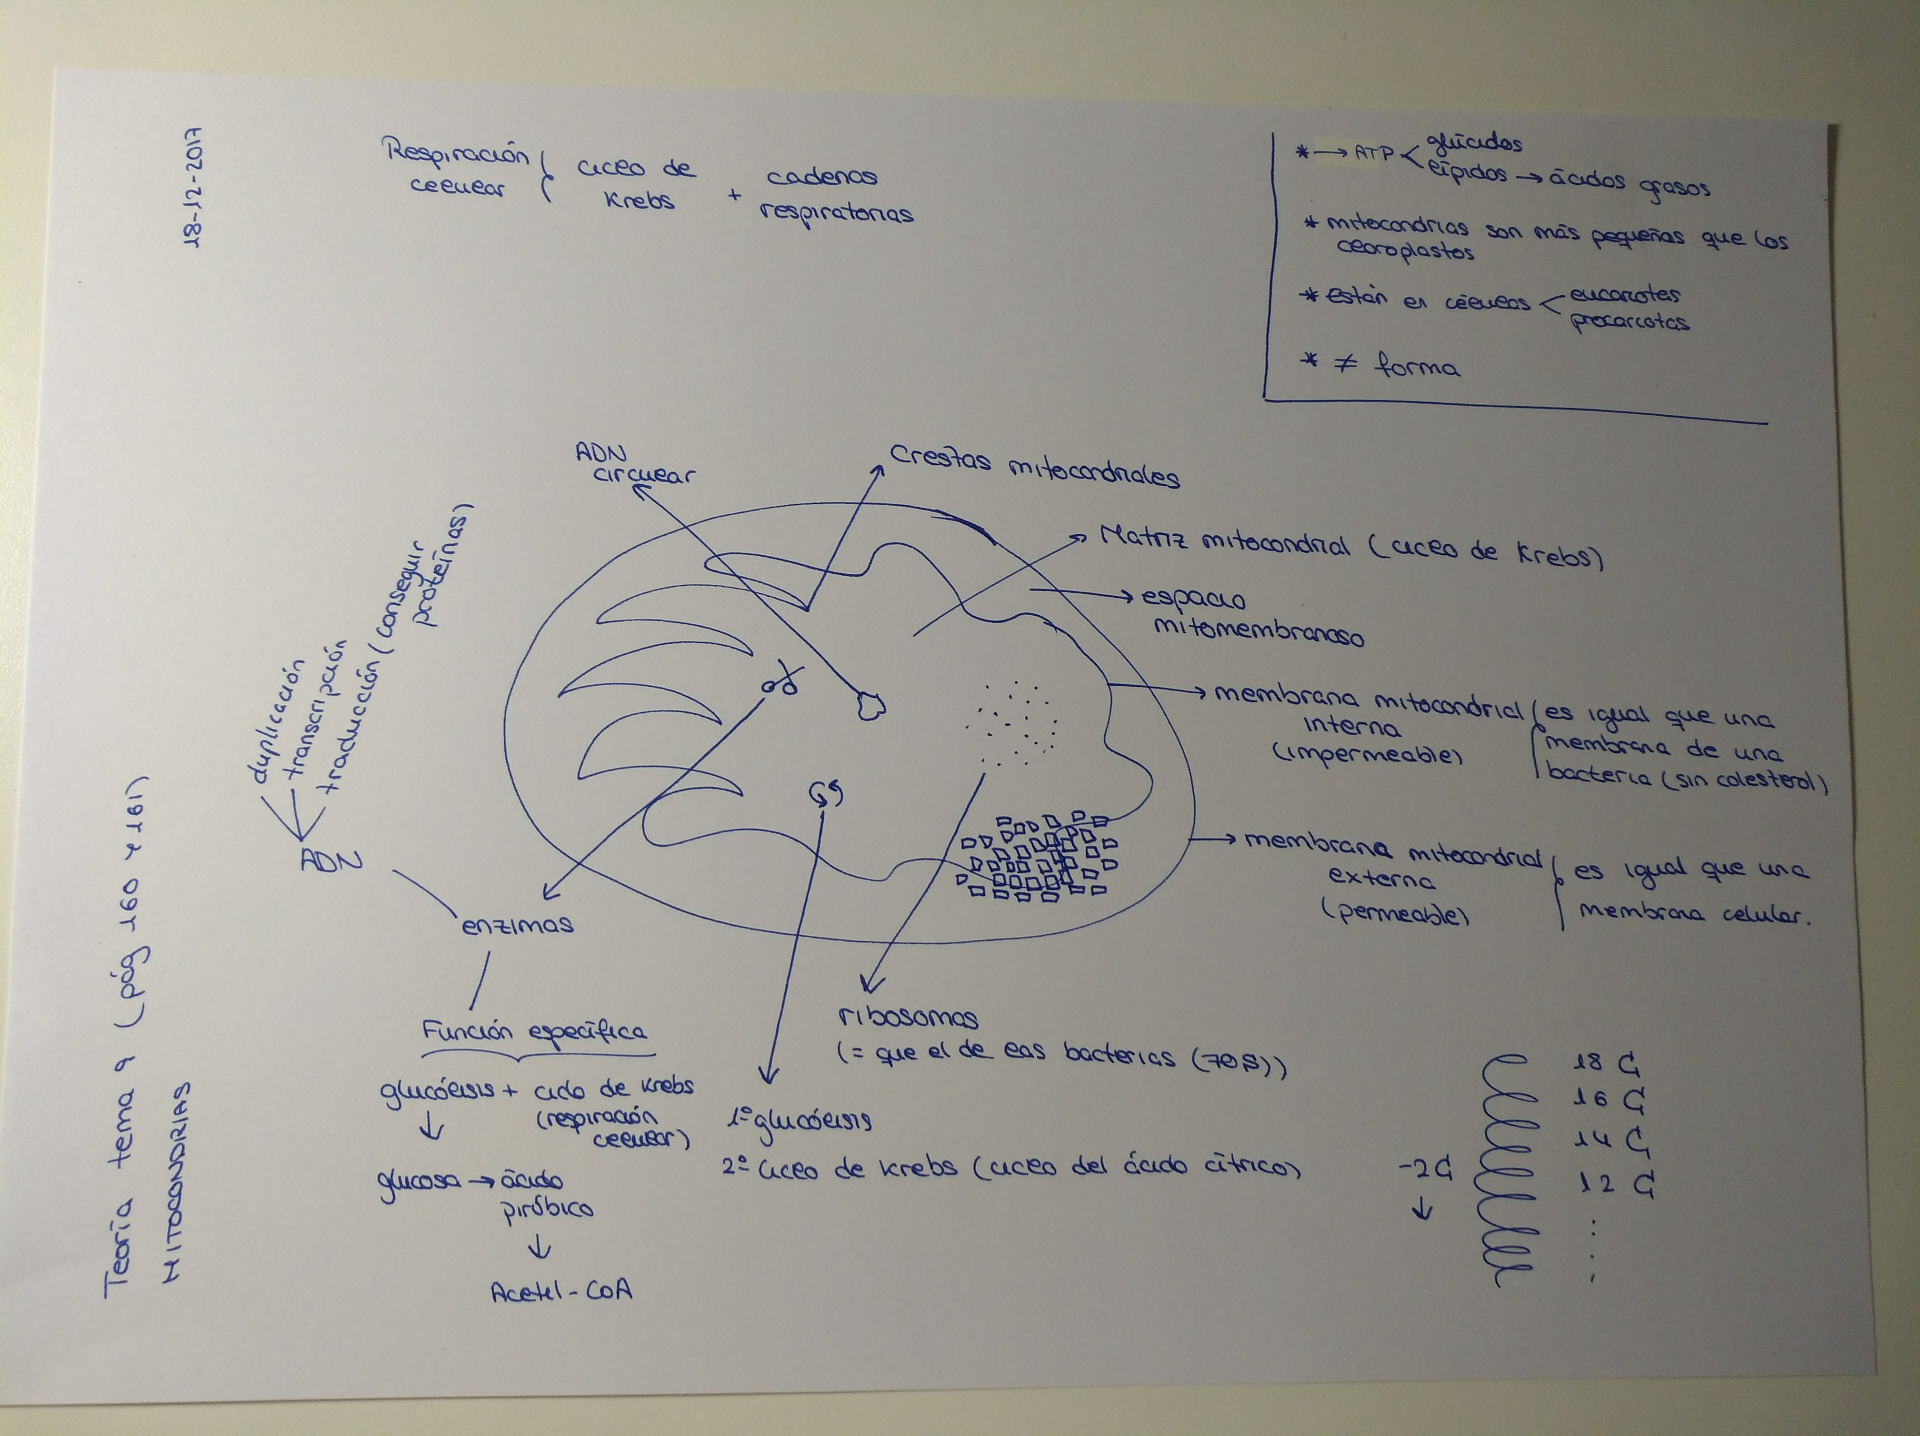 18-12-2017
Teoría tema 9 (pág 160 y 161)
MITOCONDRIAS
Respiración
celular
ciclo de
Krebs
+
cadenas
respiratorias
* → ATP < glúcidos
lípidos → ácidos grasos
* mitocondrias son más pequeñas que los
cloroplastos
* Están en células < eucariotas
procariotas
* ≠ forma
ADN
circular
Crestas mitocondriales
Matriz mitocondrial (ciclo de Krebs)
espacio
mitomembranoso
membrana mitocondrial
interna
(impermeable)
es igual que una
membrana de una
bacteria (sin colesterol)
membrana mitocondrial
externa
(permeable)
es igual que una
membrana celular.
duplicación
transcripción
traducción (conseguir
proteínas)
ADN
enzimas
Función específica
glucólisis + ciclo de Krebs
(respiración
celular)
↓
glucosa → ácido
pirúbico
↓
Acetil-CoA
ribosomas
(= que el de las bacterias (70S))
1º glucólisis
2º ciclo de Krebs (ciclo del ácido cítrico)
18 C
16 C
14 C
-2C
12 C
↓